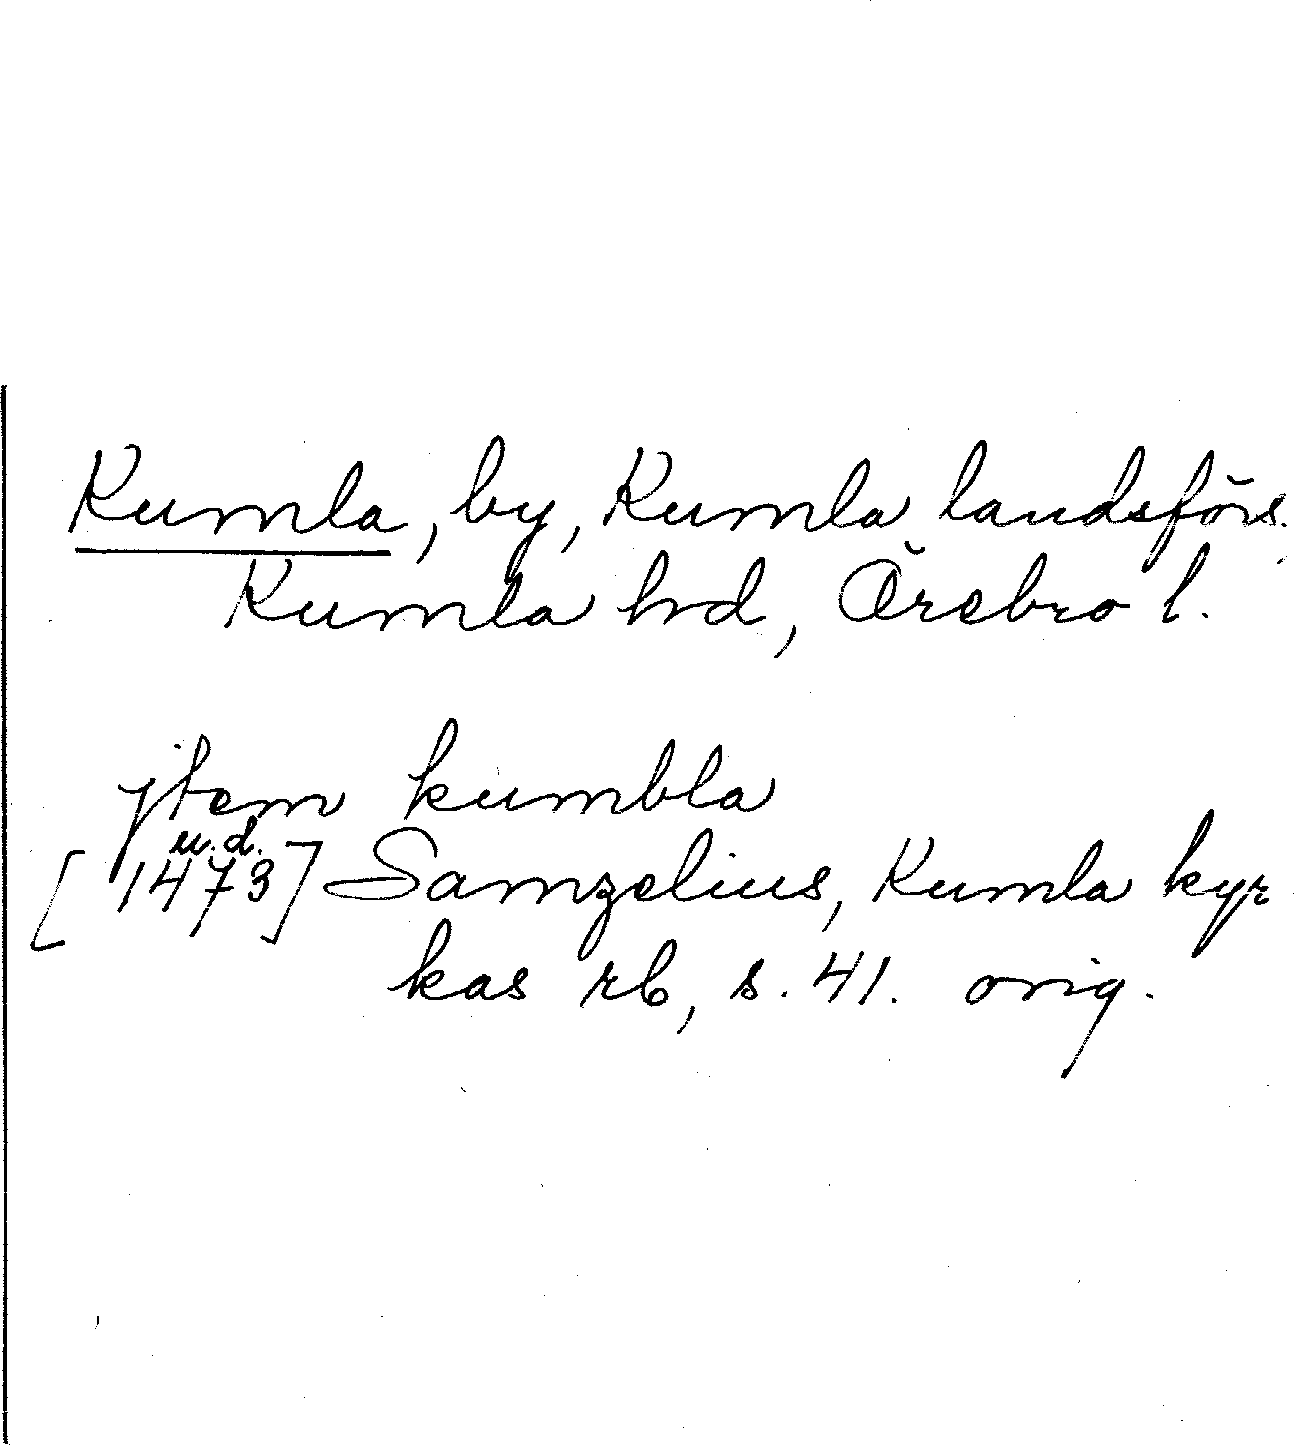 Kumla, by, Kumla landsförs.
Kumla hd, Örebro l.
jtem kumbla
u.d.
[1473] Samzelius, Kumla kyr
kas rb, s. 41. orig.